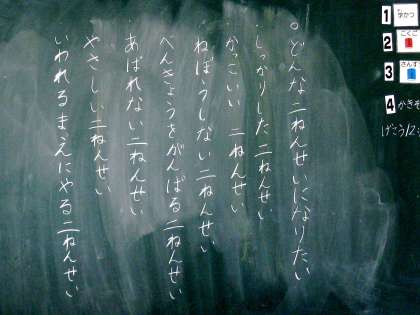 ○どんな二ねんせいになりたい
・しっかりした二ねんせい
・かっこいい 二ねんせい
ねぼうしない二ねんせい
べんきょうをがんばる二ねんせい
あばれない二ねんせい
やさしい二ねんせい
いわれるまえにやる二ねんせい
1 学かつ
2 こくご
3 さんすう
4 かきぞ
げこう12